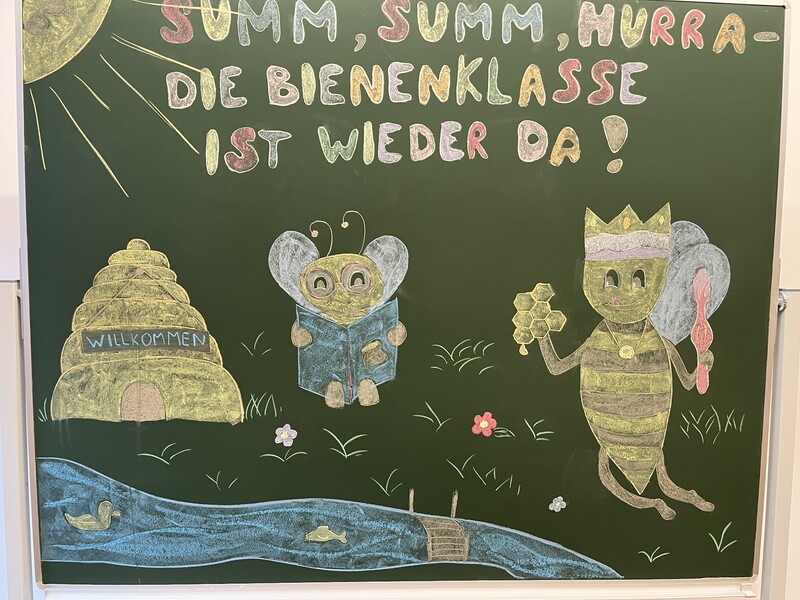 SUMM, SUMM, HURRA-
DIE BIENENKLASSE
IST WIEDER DA!
WILLKOMMEN